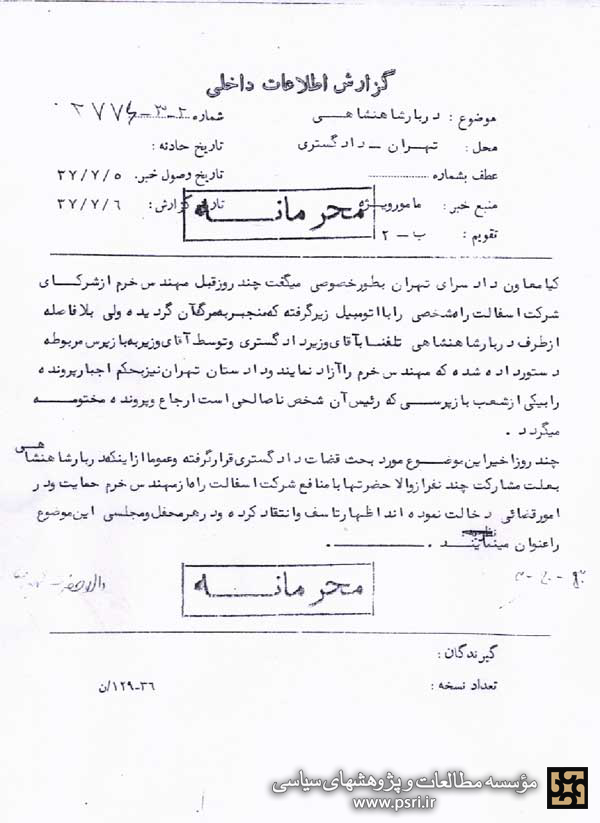 گزارش اطلاعات داخلی
موضوع : دربار شاهنشاهی
شماره
محل : تهران - دادگستری
تاریخ حادثه :
عطف بشماره
تاریخ وصول خبر: ۳۷/۷/۵
منبع خبر : مامور ویژه
تاریخ گزارش: ۳۷/۷/۶
محرمانه
تقویم : ب - ۲
کیا معاون دادسرای تهران بطور خصوصی میگفت چند روز قبل مهندس خرم از شرکای
شرکت اسفالت راه شخصی را با اتومبیل زیر گرفته که منجر بمرگ آن گردیده ولی بلافاصله
از طرف دربار شاهنشاهی تلفنا بآقای وزیر دادگستری و توسط آقای وزیر به بازپرس مربوطه
دستور داده شده که مهندس خرم را آزاد نمایند و دادستان تهران نیز بحکم اجبار پرونده
را بیکی از شعب بازپرسی که رئیس آن شخص ناصالحی است ارجاع و پرونده مختومه
میگردد .
چند روز اخیر این موضوع مورد بحث قضات دادگستری قرار گرفته و عموما از اینکه دربار شاهنشاهی
بعلت مشارکت چند نفر از والاحضرتها با منافع شرکت اسفالت راه از مهندس خرم حمایت و در
امور قضائی دخالت نموده اند اظهار تاسف و انتقاد کرده و در هر محفل و مجلسی این موضوع
را عنوان مینمایند .
محرمانه
گیرندگان :
تعداد نسخه :
۳۶-۱۲۹/ن
مؤسسه مطالعات و پژوهشهای سیاسی
www.psri.ir